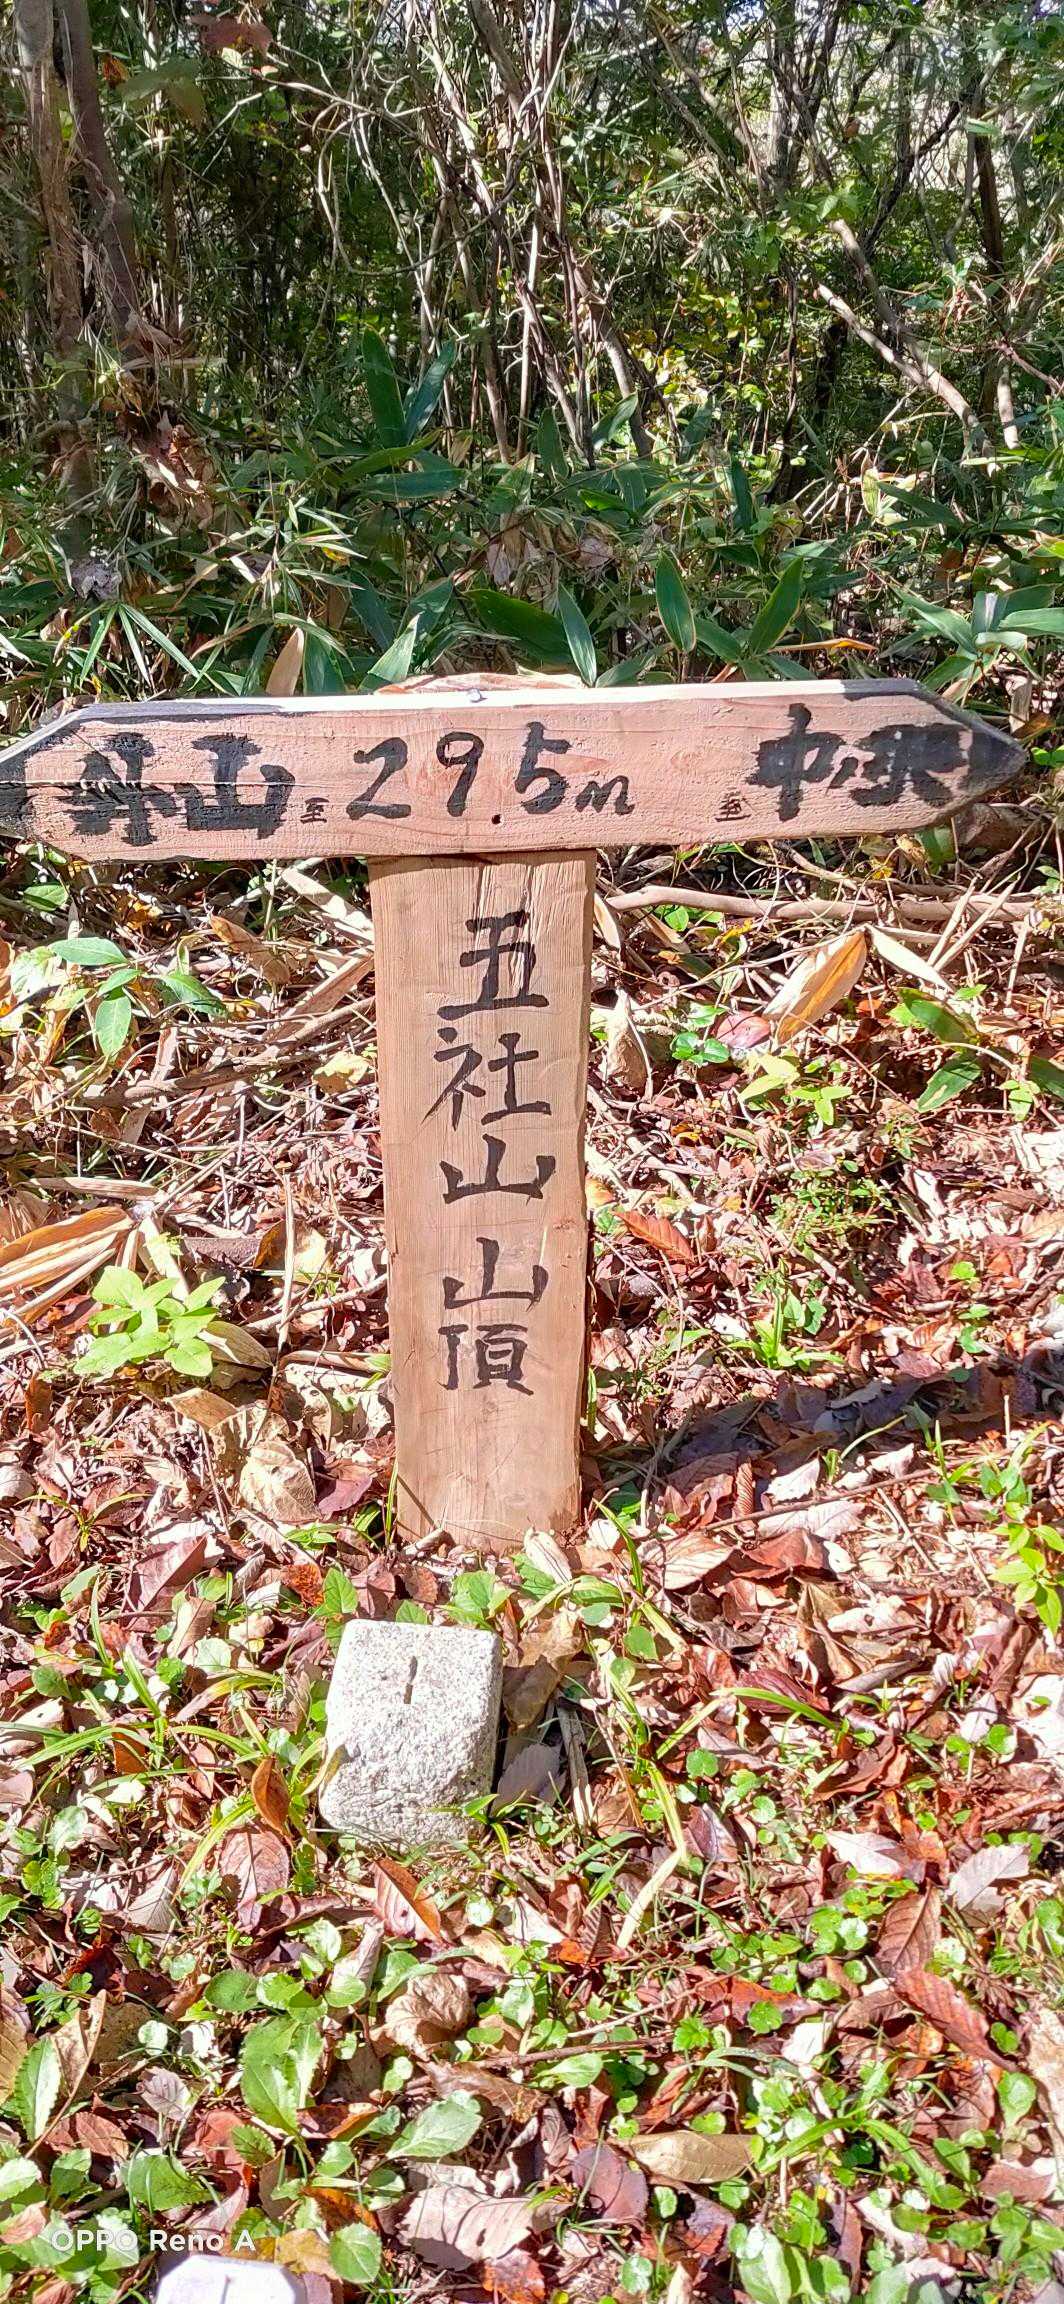 山至 295m 至中沢
五社山 山頂
OPPO Reno A